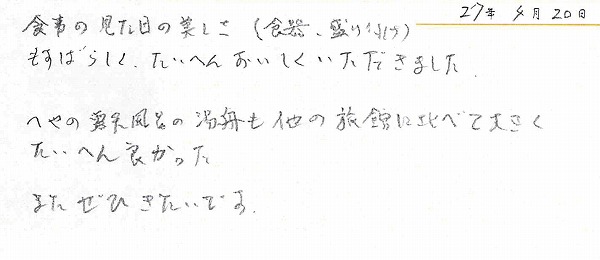 27年 4月 20日
食事の見た目の美しさ (食器、盛り付け)
もすばらしく、たいへんおいしくいただきました.
へやの露天風呂の湯舟も他の旅館に比べて大きく
たいへん良かった
またぜひきたいです.